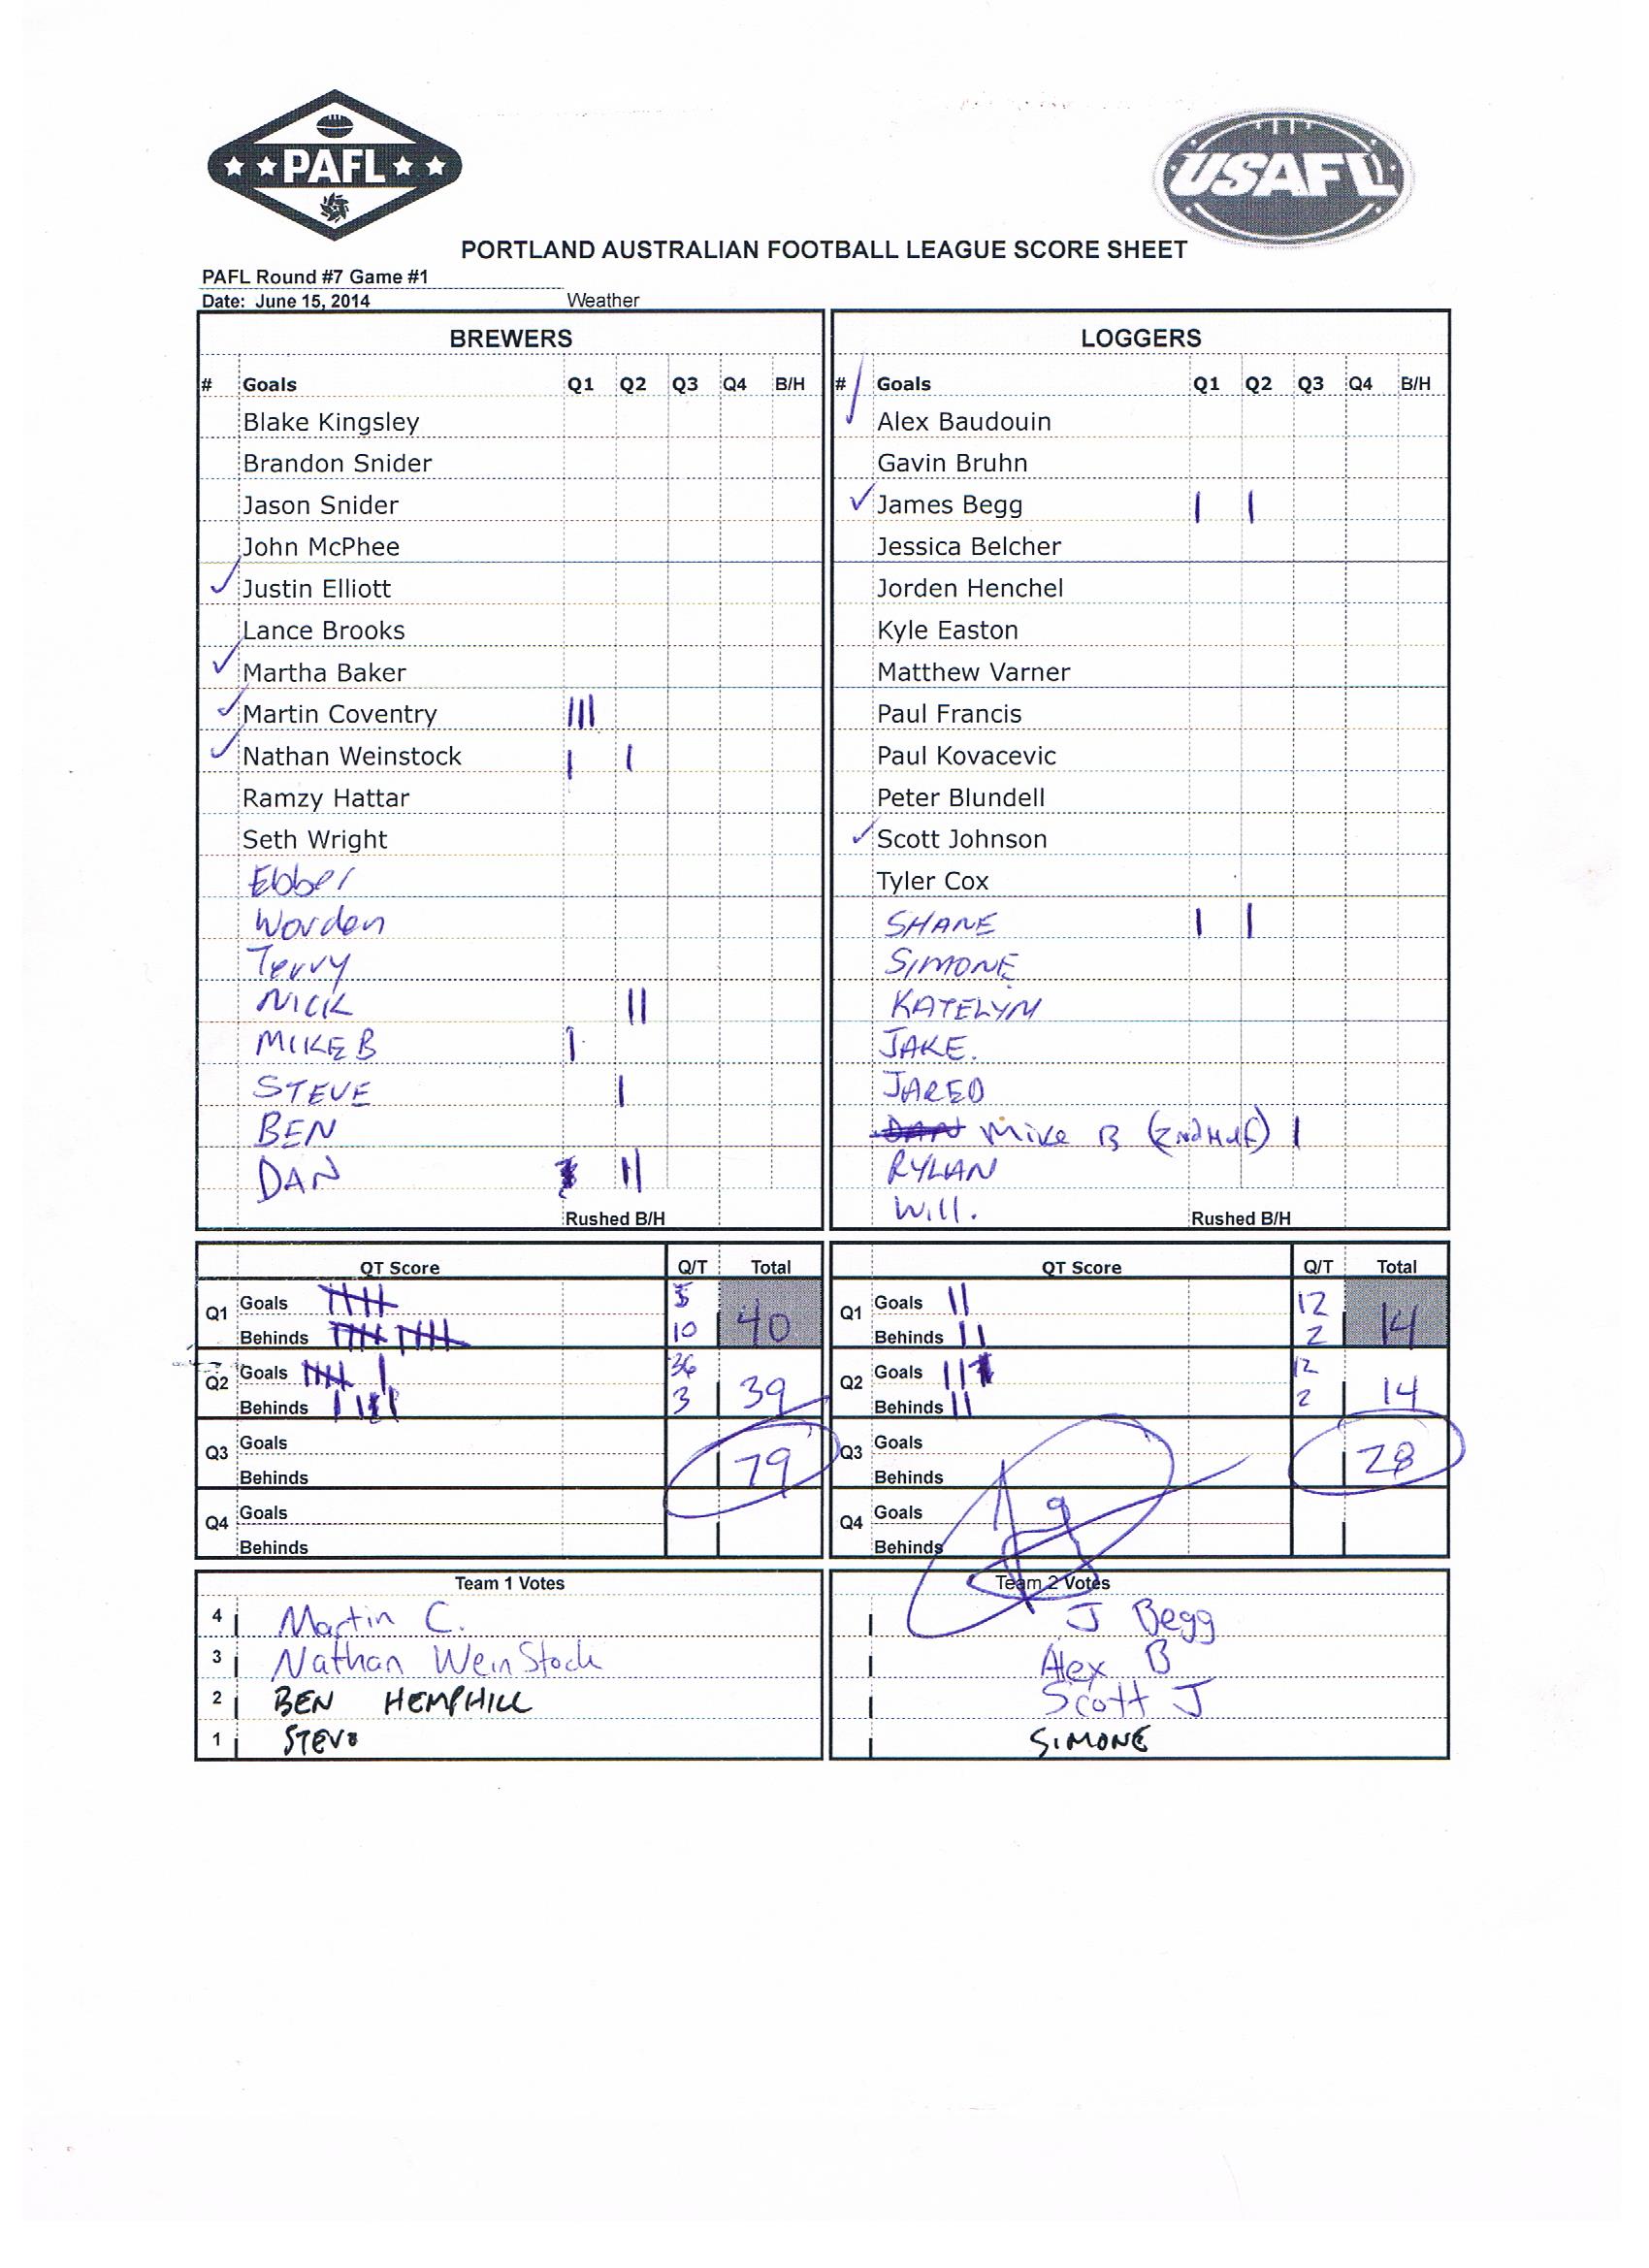 PAFL
USAFL
PORTLAND AUSTRALIAN FOOTBALL LEAGUE SCORE SHEET
PAFL Round #7 Game #1
Date: June 15, 2014 Weather
BREWERS
# Goals Q1 Q2 Q3 Q4 B/H
Blake Kingsley
Brandon Snider
Jason Snider
John McPhee
✓ Justin Elliott
Lance Brooks
✓ Martha Baker
✓ Martin Coventry |||
✓ Nathan Weinstock | |
Ramzy Hattar
Seth Wright
Ebber
Worden
Terry
NICK ||
MIKE B |
STEVE |
BEN
DAN ||
Rushed B/H
LOGGERS
# Goals Q1 Q2 Q3 Q4 B/H
✓ Alex Baudouin
Gavin Bruhn
✓ James Begg | |
Jessica Belcher
Jorden Henchel
Kyle Easton
Matthew Varner
Paul Francis
Paul Kovacevic
Peter Blundell
✓ Scott Johnson
Tyler Cox
SHANE | |
SIMONE
KATELYN
JAKE.
JARED
Mike B (2nd Half) |
RYLAN
Will.
Rushed B/H
QT Score Q/T Total
Q1 Goals 5
Behinds 10 40
Q2 Goals 36
Behinds 3 39
Q3 Goals
Behinds 79
Q4 Goals
Behinds
QT Score Q/T Total
Q1 Goals || 12
Behinds || 2 14
Q2 Goals || 12
Behinds || 2 14
Q3 Goals
Behinds 28
Q4 Goals
Behinds
Team 1 Votes
4 Martin C.
3 Nathan WeinStock
2 BEN HEMPHILL
1 STEVE
Team 2 Votes
J Begg
Alex B
Scott J
SIMONE